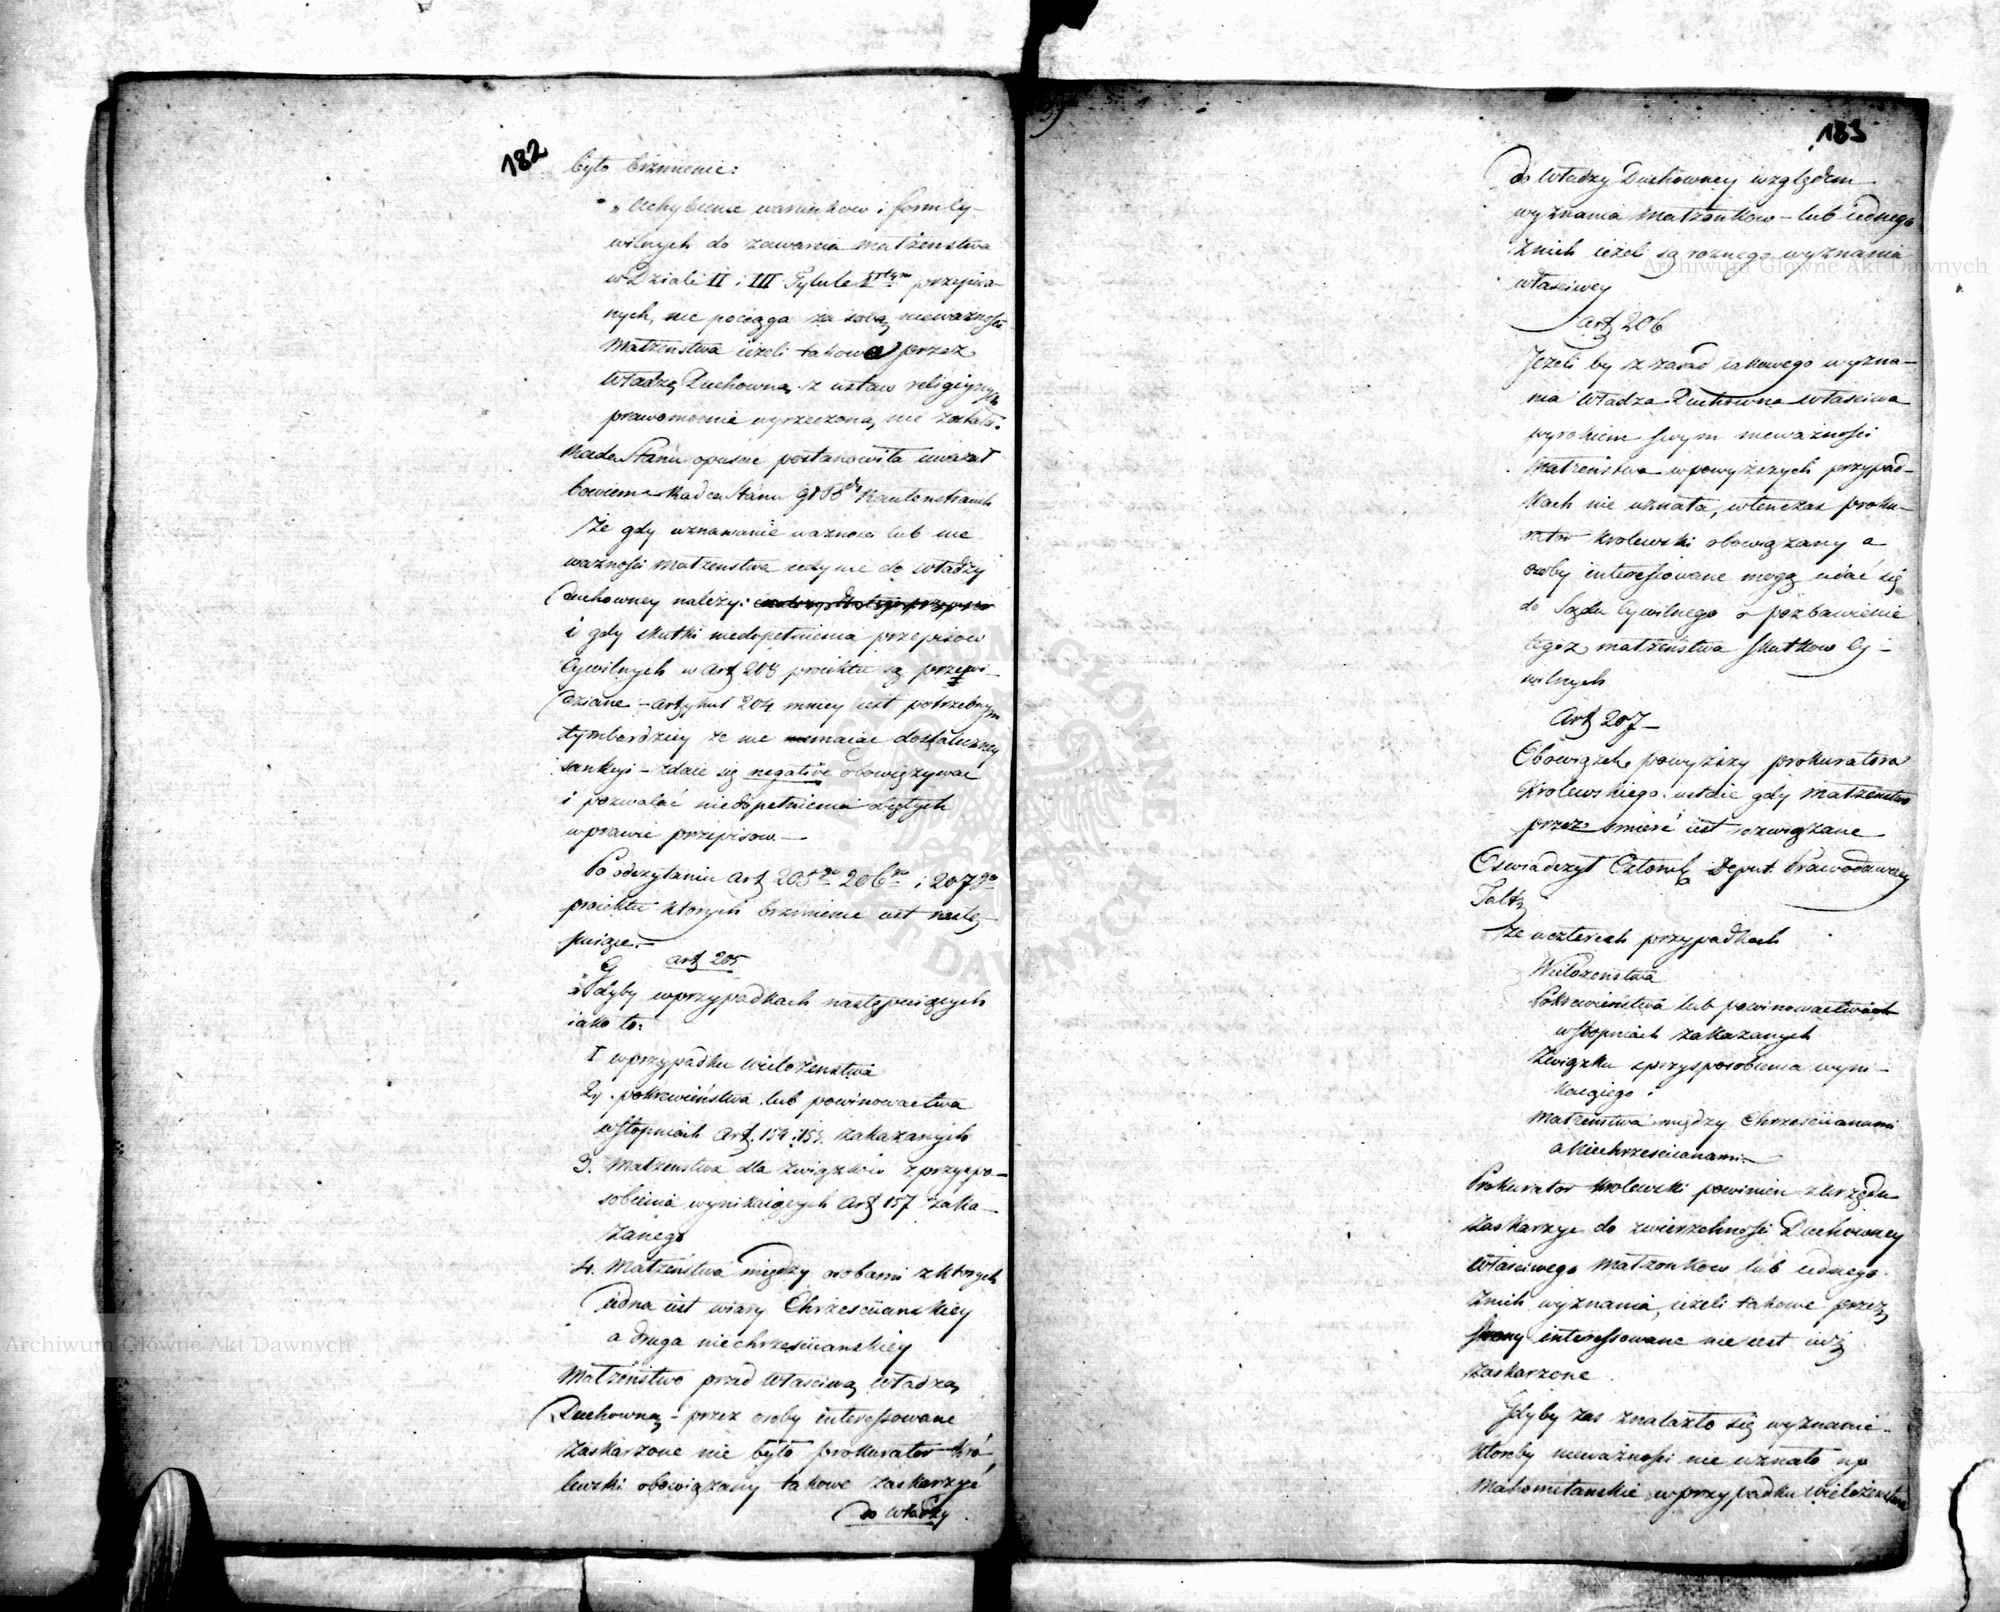 182
było brzmienie:
„Uchybienie warunkow i form Cy-
wilnych do zawarcia Małżenstwa
w Dziale II i III Tytule przepisa-
nych, nie pociąga za sobą nieważności
Małzeństwa ieżeli takowa przez
Władzę Duchowną z ustaw religiynych
prawomocnie wyrzeczoną nie została.
Rada Stanu opuscic postanowiła uważał
bowiem Radca Stanu
Że gdy uznawanie wazności lub nie
wazności Małżenstwa iedynie do władzy
duchowney należy:
i gdy skutki niedopełnienia przepisow
Cywilnych w Art 208 proiektu są przewi-
dziane – Artykuł 204 mniey iest potrzebnym
tymbardziey ze nie maiąc dostateczney
sankcyi – zdaie się negative obowięzywac
i pozwalać niedopełnienia obiętych
w prawie przepisow. —
Po odczytaniu Art 205go 206go i 207go
proiektu ktorych brzmienie iest nastę-
puiące. –
Art 205
„Gdyby w przypadkach następuiących
iako to:
I w przypadku wielożenstwa
2. pokrewieństwa lub powinowactwa
w stopniach Art. 154 i 155. zakazanych
3. Małżenstwa dla związkow z przyspo-
sobienia wynikaiących Art 157 zaka-
zanego
4. Małżeństwa między osobami z ktorych
iedna iest wiary Chrześciianskiey
a druga niechrześciianskiey
Małżeństwo przed właściwą władzą
Duchowną – przez osoby interessowane
zaskarzone nie było prokurator Kró-
lewski obowiązany takowe zaskarzyć
do władzy
183
do Władzy Duchowney względem
wyznania Małżonkow – lub iednego
z nich ieżeli są roznego wyznania
właściwey
Art 206
Jeżeli by z zasad iakowego wyzna-
nia Władza Duchowna właściwa
wyrokiem swym nieważności
Małżeństwa w powyższych przypad-
kach nie uznała, wtenczas proku-
rator Krolewski obowiązany a
osoby interessowane mogą udać się
do Sądu Cywilnego o pozbawienie
tegoż małżeństwa skutkow Cy-
wilnych
Art 207 –
Obowiązek powyższy prokuratora
Krolewskiego ustaie gdy Małżenstwo
przez śmierć iest rozwiązane
Oswiadczył Członek Deput. Prawodawczey
że w czterech przypadkach
Wielożeństwa
Pokrewieństwa lub powinowactwach
w stopniach zakazanych
Związku z przysposobienia wyni-
kaiącego.
Małżeństwa między Chrześciianami
a Niechrześciianami. –
Prokurator Krolewski powinien z urzędu
zaskarzyc do zwierzchności Duchowney
właściwego Małżonkow lub iednego
z nich wyznania, ieżeli takowe przez
strony interessowane nie iest iuż
zaskarzone.
Gdyby zas znalazło się wyznanie
ktoreby nieważności nie uznało np
Mahometanskie w przypadku wielożeństwa
Archiwum Główne Akt Dawnych
Archiwum Główne Akt Dawnych
ARCHIWUM GŁÓWNE AKT DAWNYCH